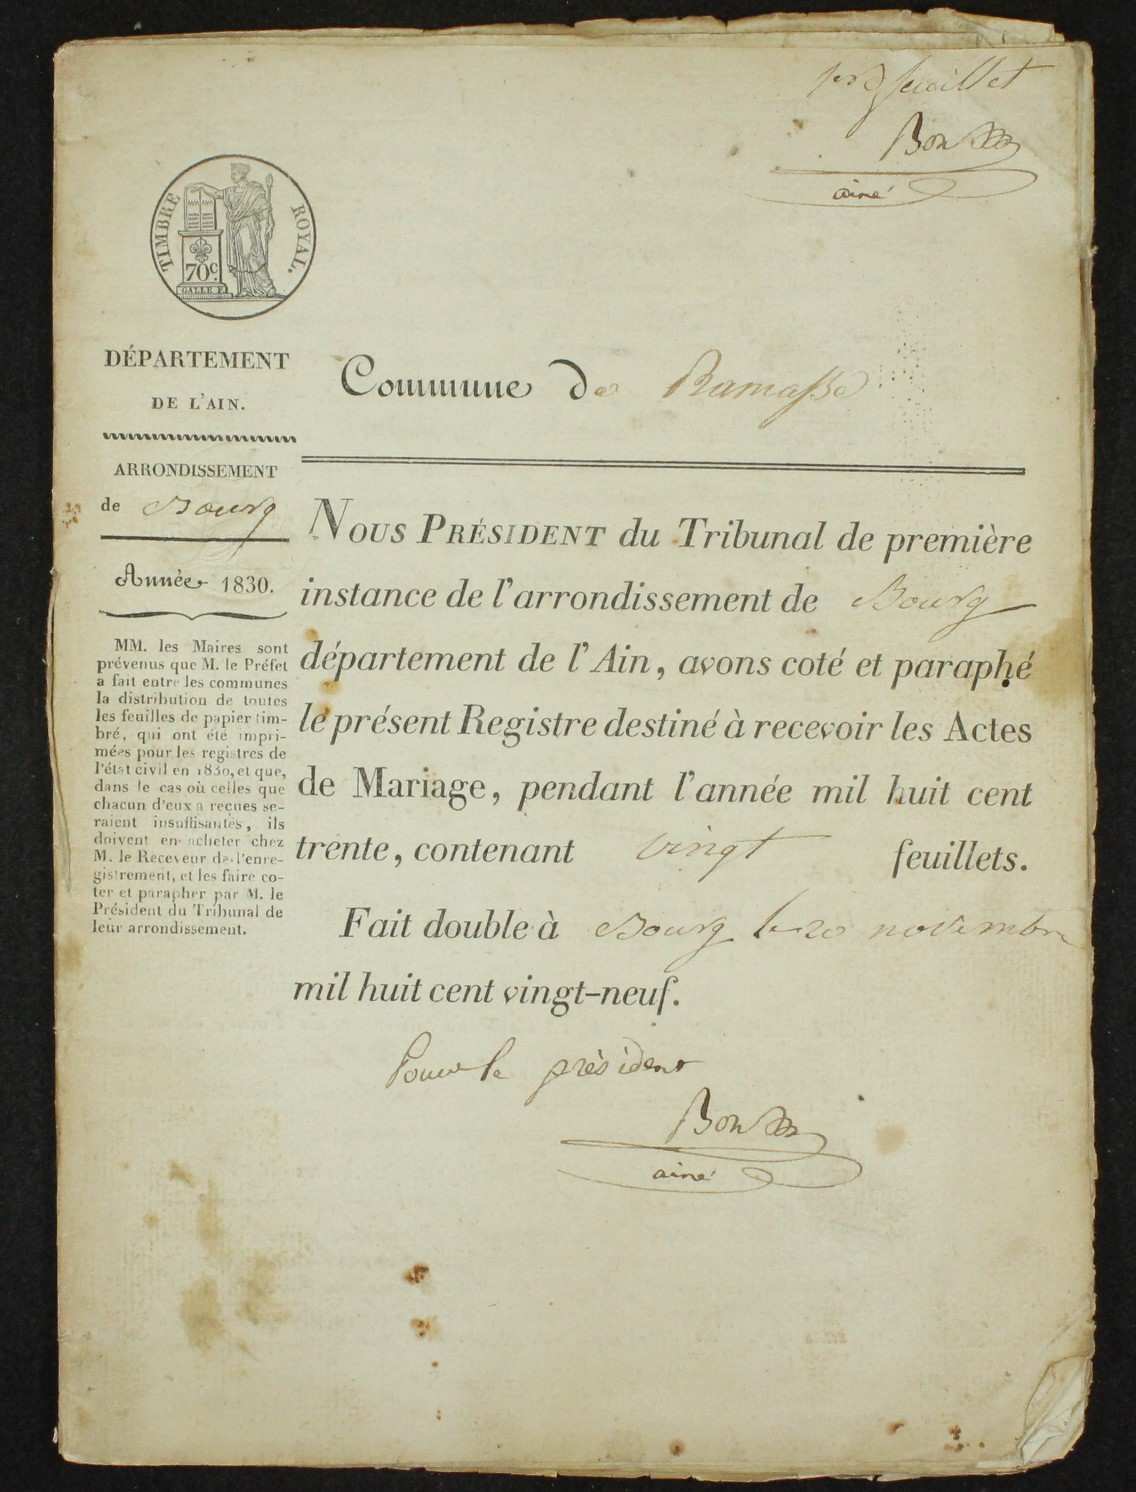 1er feuillet
Bon
ainé
TIMBRE ROYAL.
70c.
GALLE F.
DÉPARTEMENT
DE L'AIN.
Commune de Ramasse
ARRONDISSEMENT
de Bourg
Année 1830.
MM. les Maires sont
prévenus que M. le Préfet
a fait entre les communes
la distribution de toutes
les feuilles de papier tim-
bré, qui ont été impri-
mées pour les registres de
l'état civil en 1830, et que,
dans le cas où celles que
chacun d'eux a reçues se-
raient insuffisantes, ils
doivent en acheter chez
M. le Receveur de l'enre-
gistrement, et les faire co-
ter et parapher par M. le
Président du Tribunal de
leur arrondissement.
NOUS PRÉSIDENT du Tribunal de première
instance de l'arrondissement de Bourg
département de l'Ain, avons coté et paraphé
le présent Registre destiné à recevoir les Actes
de Mariage, pendant l'année mil huit cent
trente, contenant vingt feuillets.
Fait double à Bourg le 20 novembre
mil huit cent vingt-neuf.
Pour le président
Bon
ainé